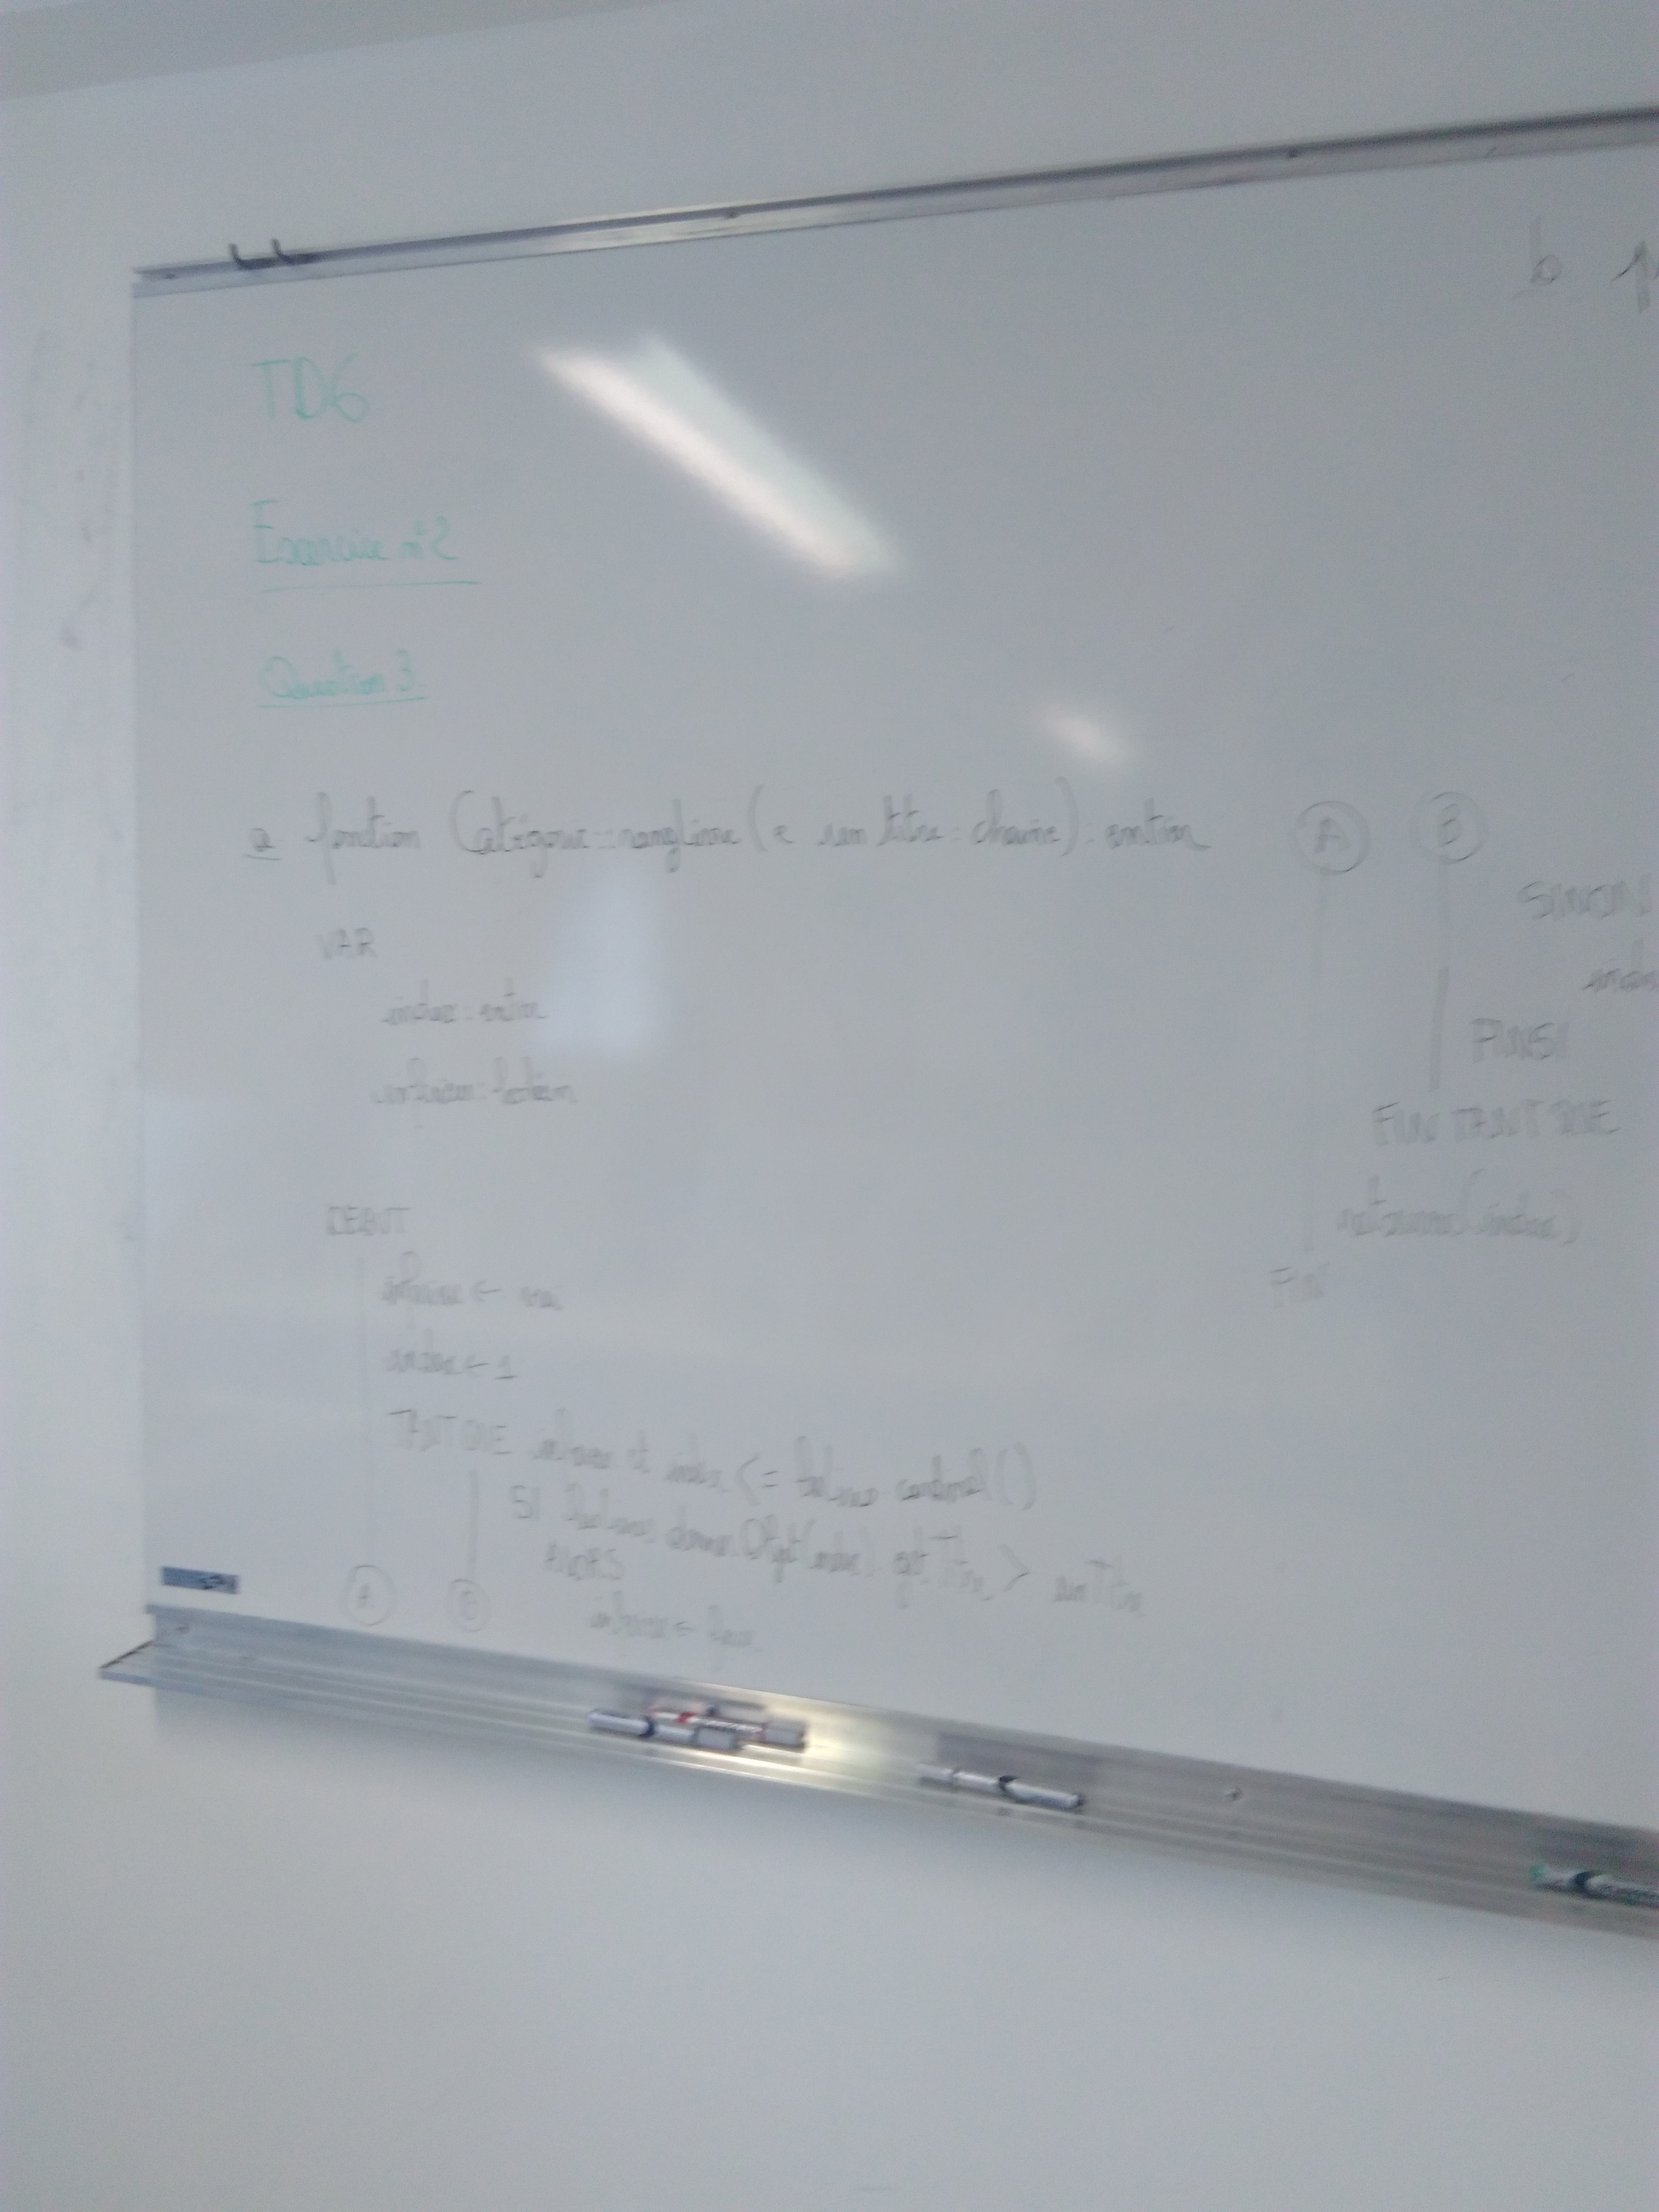 TD6
Exercice n°2
Question 3
a fonction Catégorie::rangLivre(e un titre: chaine): entier
VAR
index: entier
inférieur: booléen
DEBUT
inférieur ← vrai
index ← 1
TANT QUE inférieur et index <= cardinal()
SI donnerObjet(index). getTitre > unTitre
ALORS
inférieur ← faux
A B
A B
SINON
FINSI
FIN TANT QUE
retourne(index)
FIN
b